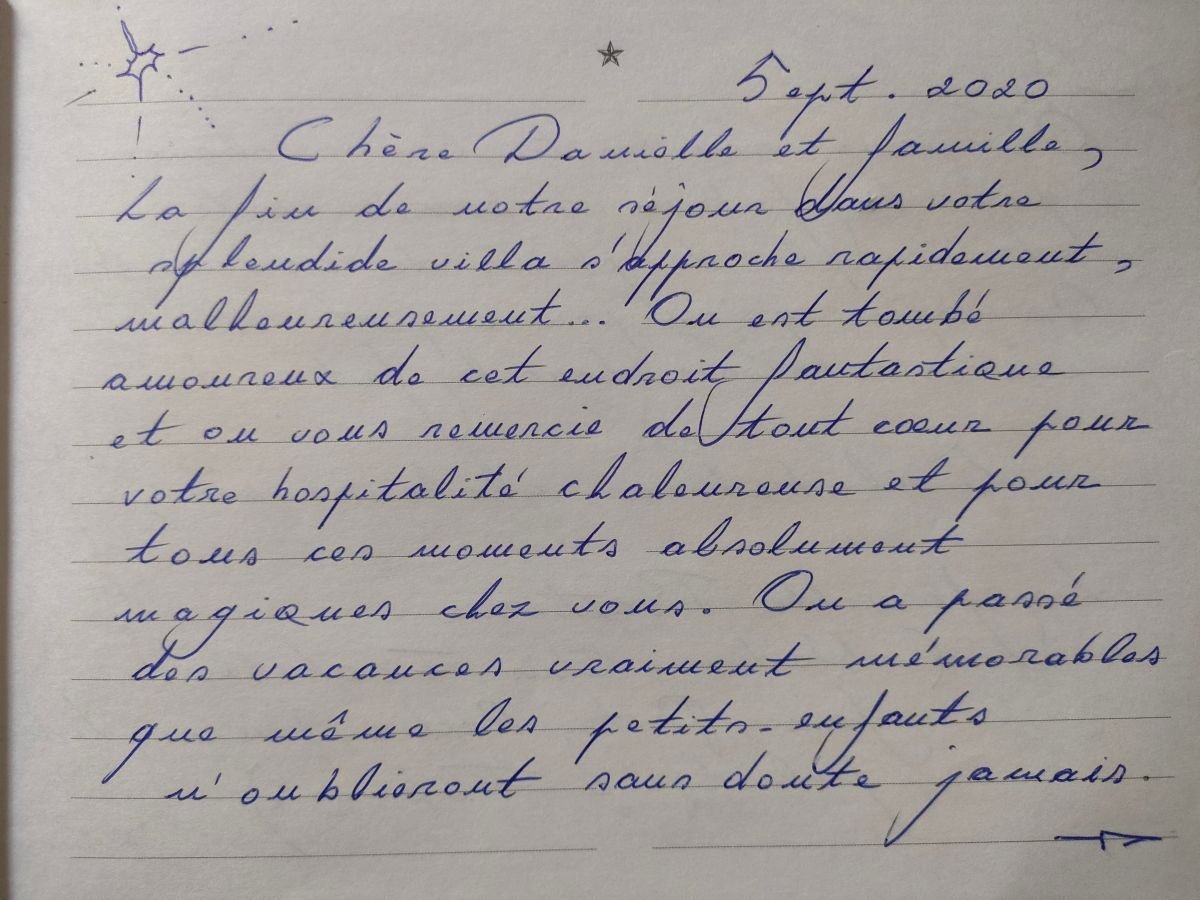 Sept. 2020
Chère Danielle et famille,
La fin de notre séjour dans votre
splendide villa s'approche rapidement,
malheureusement... On est tombé
amoureux de cet endroit fantastique
et on vous remercie de tout cœur pour
votre hospitalité chaleureuse et pour
tous ces moments absolument
magiques chez vous. On a passé
des vacances vraiment mémorables
que même les petits-enfants
n'oublieront sans doute jamais.